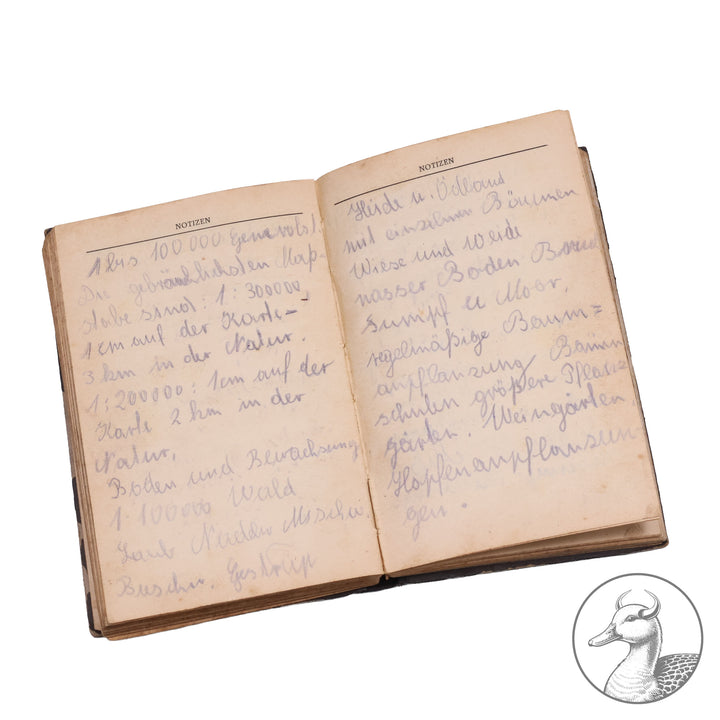 NOTIZEN
1 bis 100000
Die gebräuchlichsten Maß-
stabe sind: 1:300000,
1 cm auf der Karte -
3 km in der Natur.
1:200000: 1cm auf der
Karte 2 km in der
Natur,
Boden und Bewachsung
1:100000 Wald
Laub Nadel Misch
Busch u. Gestrüp
NOTIZEN
Heide u. Ödland
mit einzelnen Bäumen
Wiese und Weide
nasser Boden
Sumpf u Moor,
regelmäßige Baum=
anpflanzung Baum
schulen größere Pflanz
gärten. Weingärten
Hopfenanpflanzun
gen.